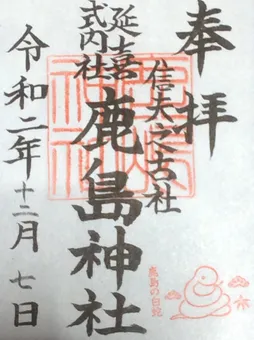 奉拝
信夫之古社
鹿島神社
延喜
式内社
令和二年十二月七日
鹿島の白蛇